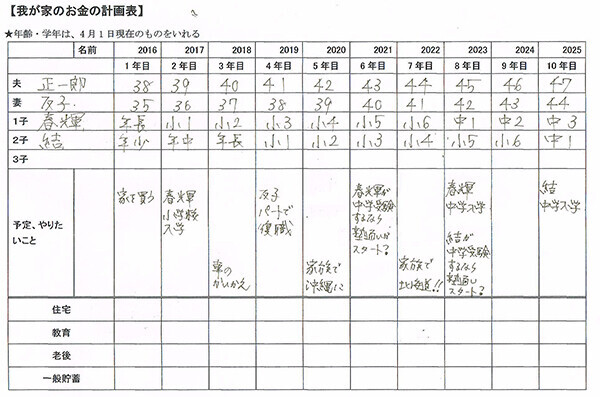 【我が家のお金の計画表】
★年齢・学年は、4月1日現在のものをいれる
名前 2016 2017 2018 2019 2020 2021 2022 2023 2024 2025
1年目 2年目 3年目 4年目 5年目 6年目 7年目 8年目 9年目 10年目
夫 正一郎 38 39 40 41 42 43 44 45 46 47
妻 友子 35 36 37 38 39 40 41 42 43 44
1子 春輝 年長 小1 小2 小3 小4 小5 小6 中1 中2 中3
2子 結 年少 年中 年長 小1 小2 小3 小4 小5 小6 中1
3子
予定、やりた
いこと
家を買う
春輝
小学校
入学
車の
かいかえ
友子
パートで
復職
家族で
沖縄に
春輝が
中学受験
するなら
塾通いが
スタート?
家族で
北海道!!
春輝
中学入学
結が
中学受験
するなら
塾通い
スタート?
結
中学入学
住宅
教育
老後
一般貯蓄